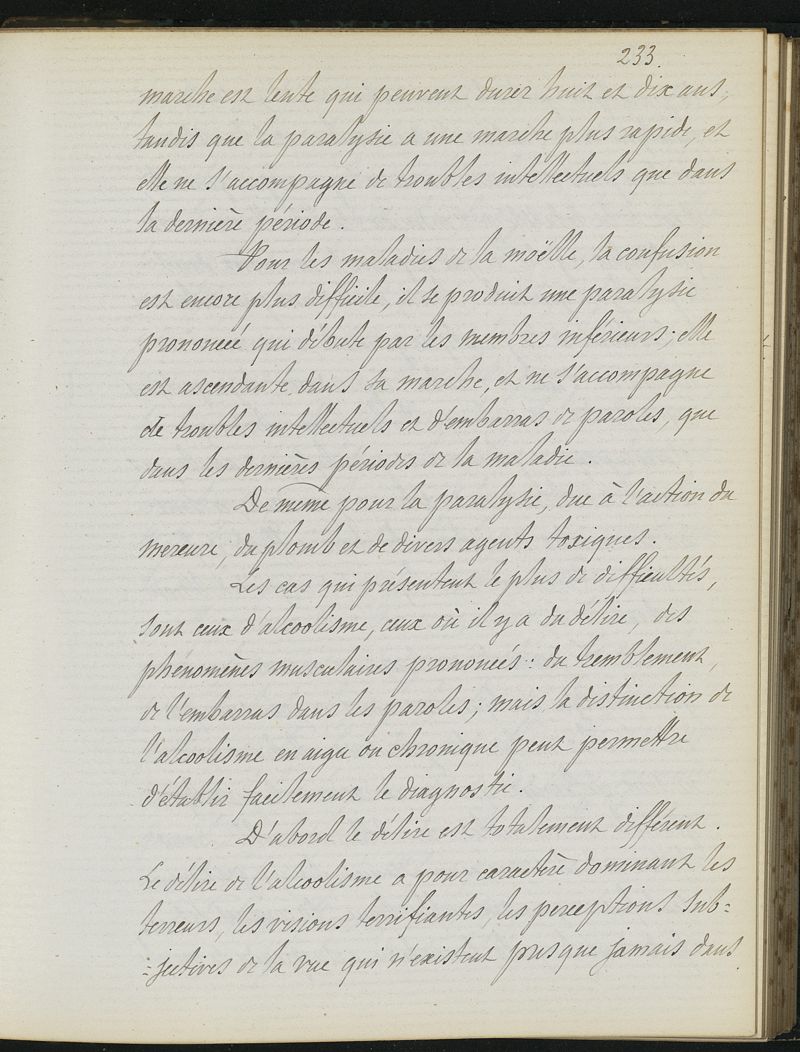 233.
marche est lente qui peuvent durer huit et dix ans,
tandis que la paralysie a une marche plus rapide, et
elle ne s'accompagne de troubles intellectuels que dans
la dernière période.
Pour les maladies de la moëlle, la confusion
est encore plus difficile, il se produit une paralysie
prononcée qui débute par les membres inférieurs; elle
est ascendante dans sa marche, et ne s'accompagne
de troubles intellectuels et d'embarras de paroles, que
dans les dernières périodes de la maladie.
De même pour la paralysie, due à l'action du
mercure, du plomb et de divers agents toxiques.
Les cas qui présentent le plus de difficultés,
sont ceux d'alcoolisme, ceux où il y a du délire, des
phénomènes musculaires prononcés: du tremblement,
de l'embarras dans les paroles; mais la distinction de
l'alcoolisme en aigu ou chronique peut permettre
d'établir facilement le diagnostic.
D'abord le délire est totalement différent.
Le délire de l'alcoolisme a pour caractère dominant les
terreurs, les visions terrifiantes, les perceptions sub=
=jectives de la vue qui n'existent presque jamais dans